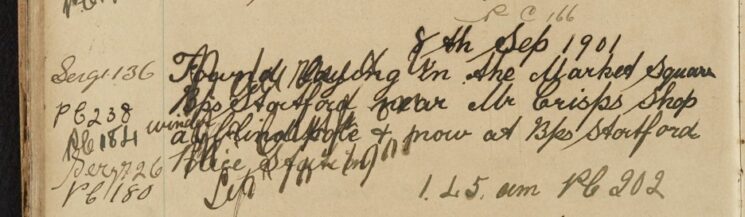 P C 166
8th Sep 1901
Sergt 136 Found laying in the Market Square
PC 238 Bps Stortford near Mr Crisps Shop
PC 184 window a & now at Bps Stortford
Sergt 26 Police Station
PC 180 Sep 1.45. am PC 202